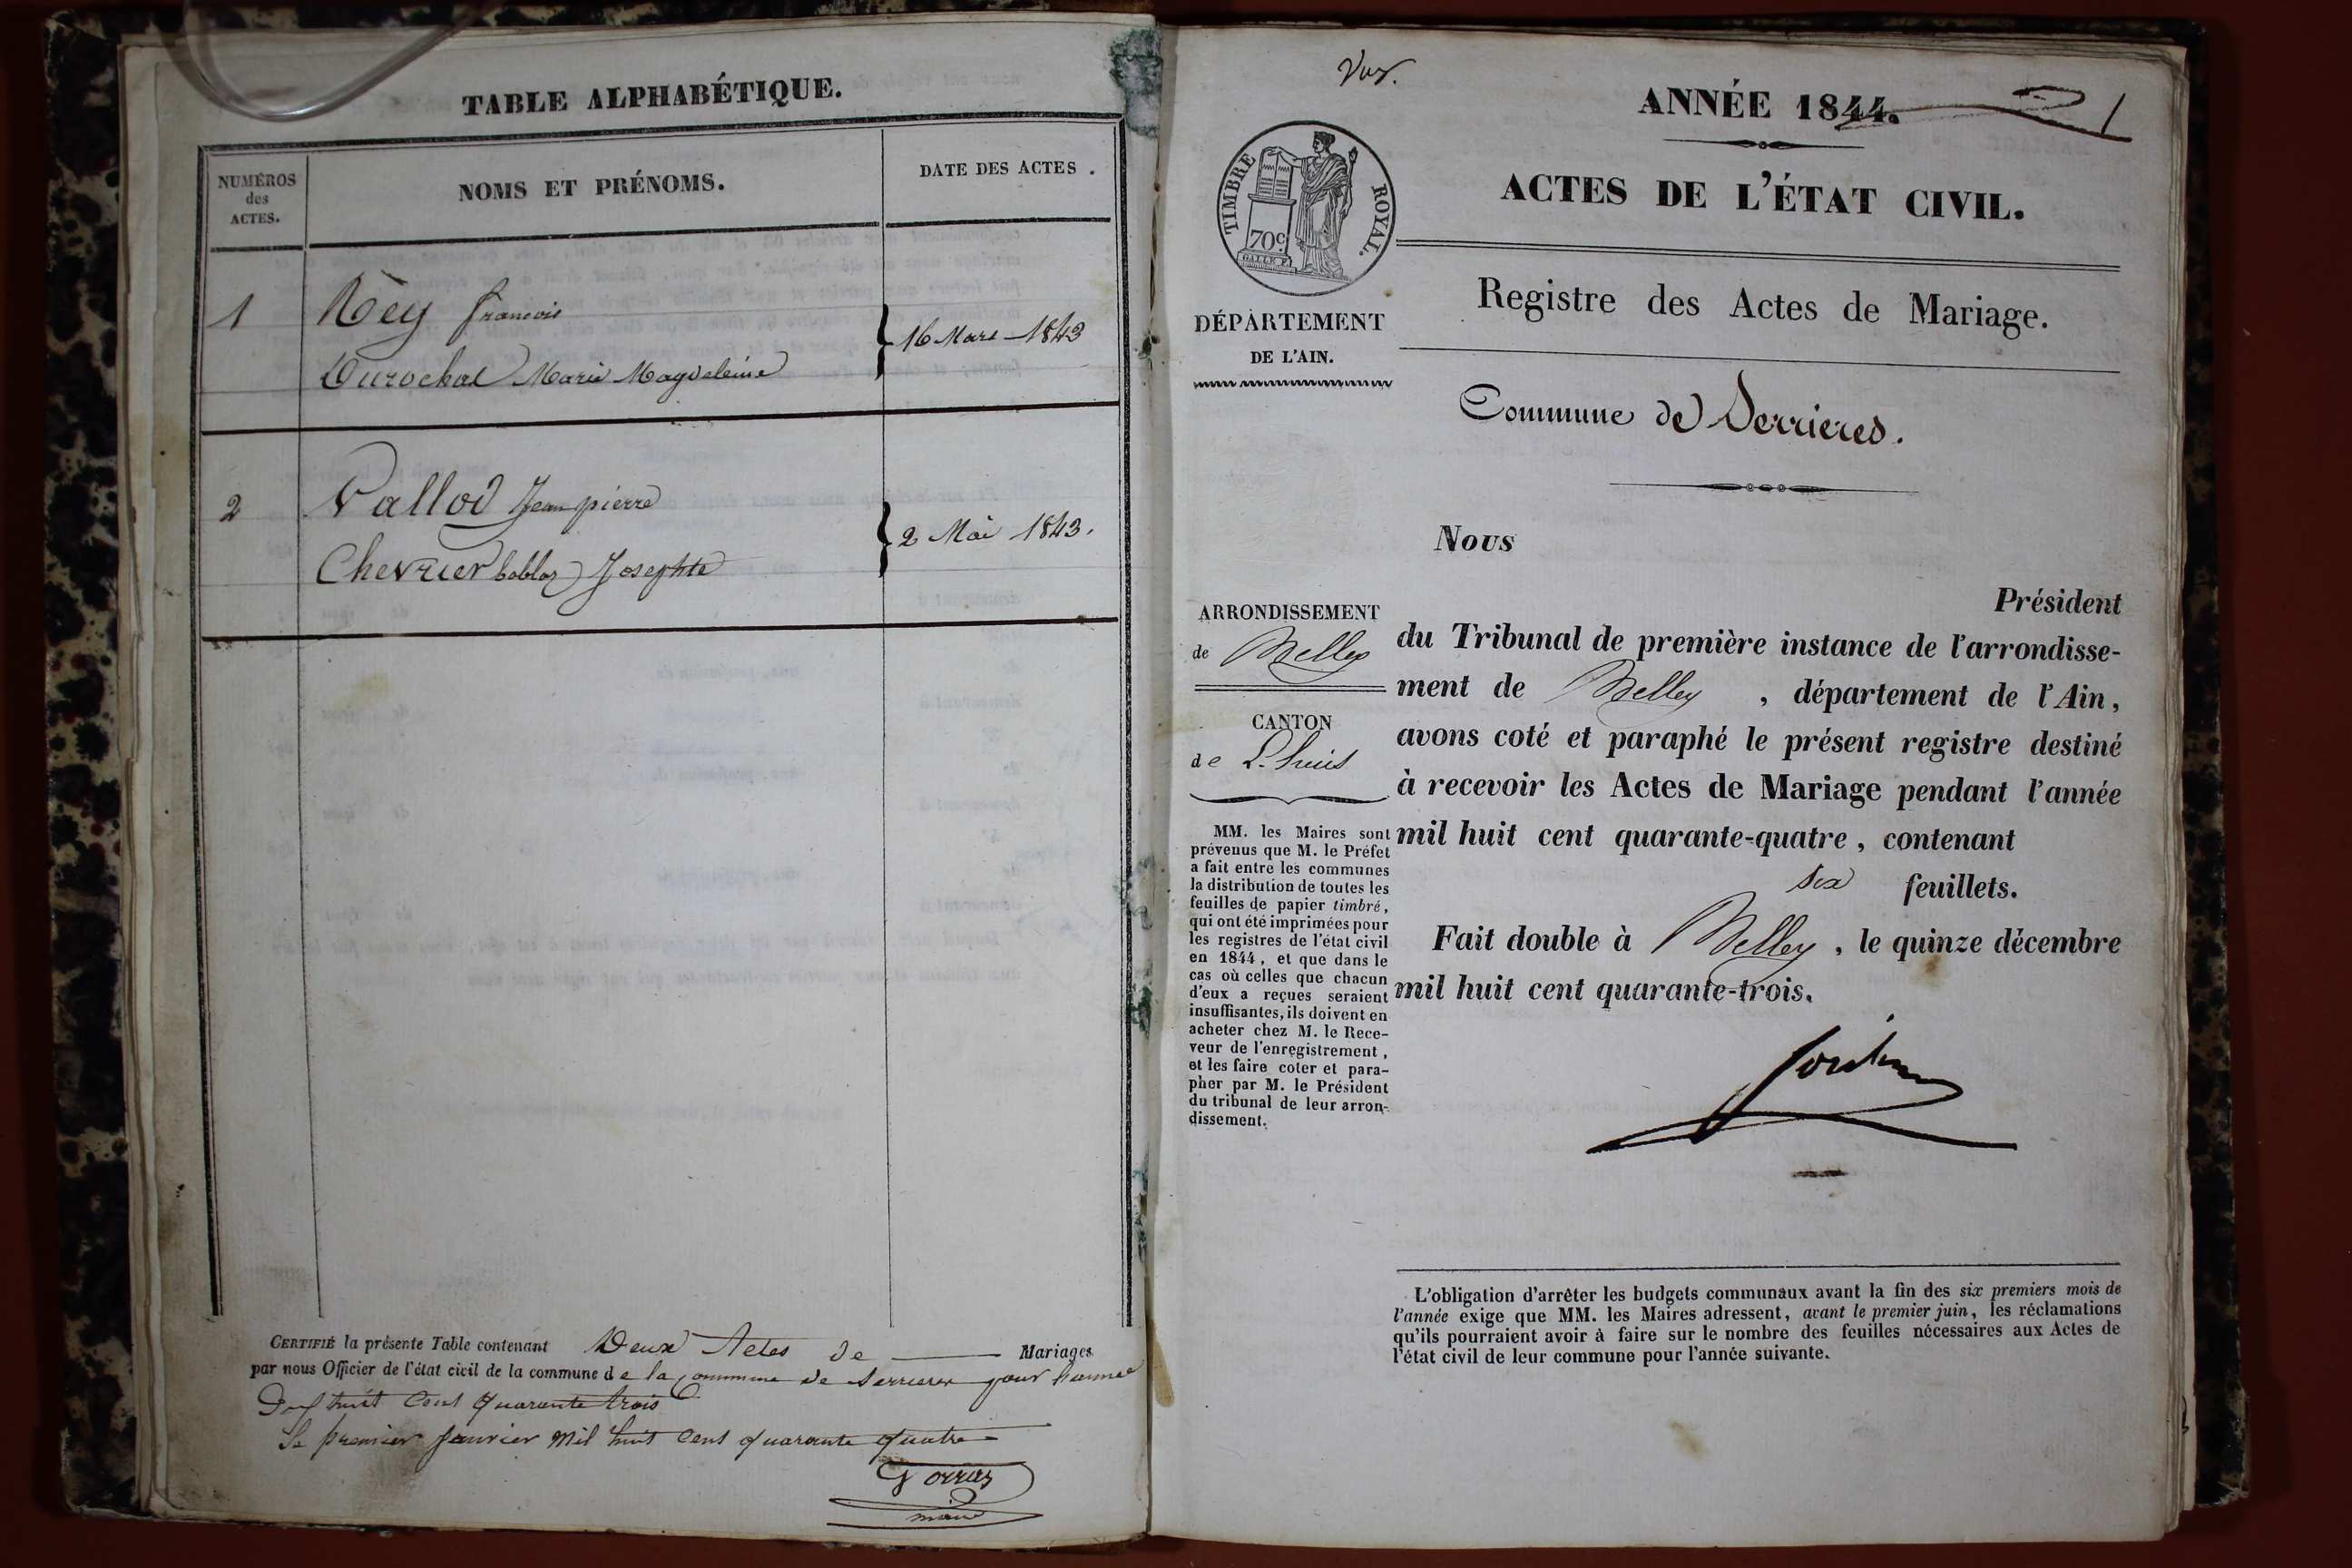 TABLE ALPHABÉTIQUE.
NUMÉROS
des
ACTES.
NOMS ET PRÉNOMS.
DATE DES ACTES.
1
Rey françois
Durochat Marie Magdeleine
16 Mars 1843
2
Vallod Jean pierre
Chevrier Josephte
2 Mai 1843.
CERTIFIÉ la présente Table contenant Deux Actes de Mariages
par nous Officier de l'état civil de la commune de la commune de Serrieres pour l'année
huit Cent quarante trois
Le premier Janvier Mil huit Cent quarante quatre
maire
ANNÉE 1844.
1
TIMBRE ROYAL.
70c
GALLE F.
ACTES DE L'ÉTAT CIVIL.
Registre des Actes de Mariage.
DÉPARTEMENT
DE L'AIN.
Commune de Serrieres.
Nous
Président
ARRONDISSEMENT
de Belley
CANTON
de L'huis
du Tribunal de première instance de l'arrondisse-
ment de Belley, département de l'Ain,
avons coté et paraphé le présent registre destiné
à recevoir les Actes de Mariage pendant l'année
mil huit cent quarante-quatre, contenant
six feuillets.
Fait double à Belley, le quinze décembre
mil huit cent quarante-trois.
MM. les Maires sont
prévenus que M. le Préfet
a fait entre les communes
la distribution de toutes les
feuilles de papier timbré,
qui ont été imprimées pour
les registres de l'état civil
en 1844, et que dans le
cas où celles que chacun
d'eux a reçues seraient
insuffisantes, ils doivent en
acheter chez M. le Rece-
veur de l'enregistrement,
et les faire coter et para-
pher par M. le Président
du tribunal de leur arron-
dissement.
L'obligation d'arrêter les budgets communaux avant la fin des six premiers mois de
l'année exige que MM. les Maires adressent, avant le premier juin, les réclamations
qu'ils pourraient avoir à faire sur le nombre des feuilles nécessaires aux Actes de
l'état civil de leur commune pour l'année suivante.